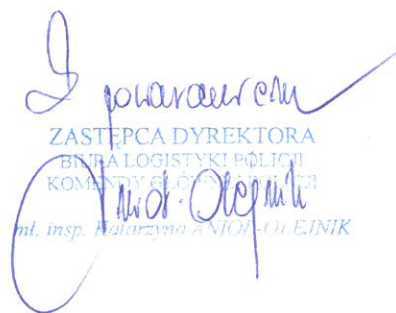 Z poważaniem
ZASTĘPCA DYREKTORA
BIURA LOGISTYKI POLICJI
KOMENDY GŁÓWNEJ POLICJI
Anioł-Olejnik
mł. insp. Katarzyna ANIOŁ-OLEJNIK